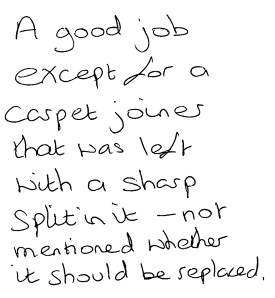 A good job
except for a
carpet joiner
that was left
with a sharp
split in it - not
mentioned whether
it should be replaced.